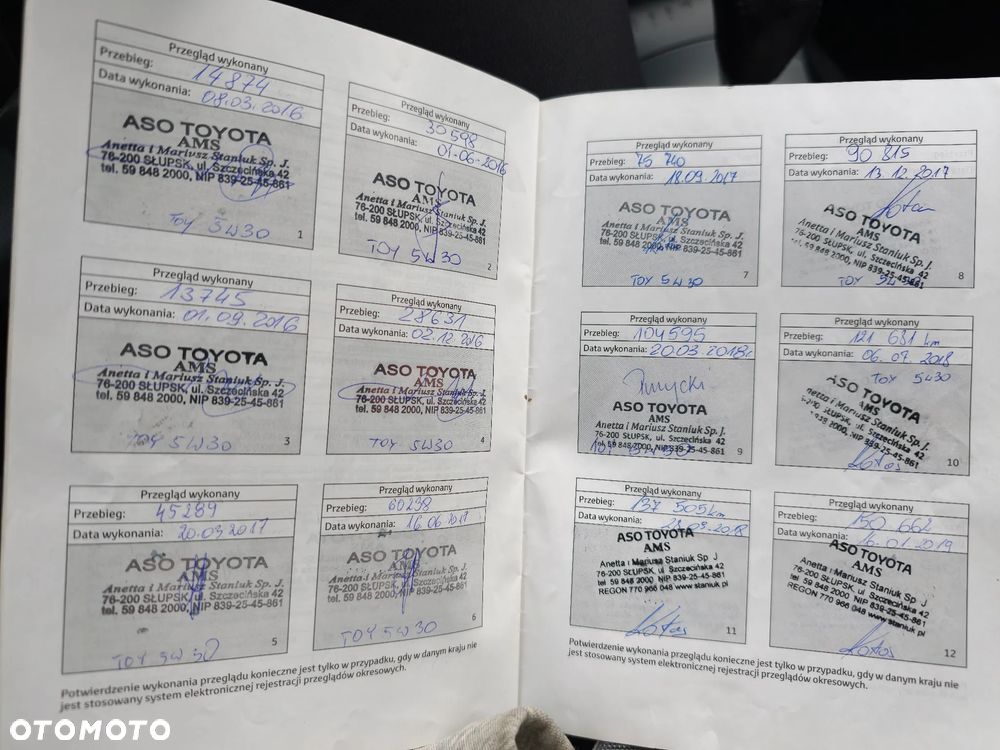 Przegląd wykonany
Przebieg: 14874
Data wykonania: 08.03.2016
ASO TOYOTA
AMS
Anetta i Mariusz Staniuk Sp. J.
76-200 SŁUPSK, ul. Szczecińska 42
tel. 59 848 2000, NIP 839-25-45-861
TOY 5W30
1
Przegląd wykonany
Przebieg: 30598
Data wykonania: 01-06-2016
ASO TOYOTA
AMS
Anetta i Mariusz Staniuk Sp. J.
76-200 SŁUPSK, ul. Szczecińska 42
tel. 59 848 2000, NIP 839-25-45-861
TOY 5W30
2
Przegląd wykonany
Przebieg: 13745
Data wykonania: 01.09.2016
ASO TOYOTA
AMS
Anetta i Mariusz Staniuk Sp. J.
76-200 SŁUPSK, ul. Szczecińska 42
tel. 59 848 2000, NIP 839-25-45-861
TOY 5W30
3
Przegląd wykonany
Przebieg: 28631
Data wykonania: 02.12.2016
ASO TOYOTA
AMS
Anetta i Mariusz Staniuk Sp. J.
76-200 SŁUPSK, ul. Szczecińska 42
tel. 59 848 2000, NIP 839-25-45-861
TOY 5W30
4
Przegląd wykonany
Przebieg: 45289
Data wykonania: 20.03.2017
ASO TOYOTA
AMS
Anetta i Mariusz Staniuk Sp. J.
76-200 SŁUPSK, ul. Szczecińska 42
tel. 59 848 2000, NIP 839-25-45-861
TOY 5W30
5
Przegląd wykonany
Przebieg: 60298
Data wykonania: 16.06.2017
ASO TOYOTA
AMS
Anetta i Mariusz Staniuk Sp. J.
76-200 SŁUPSK, ul. Szczecińska 42
tel. 59 848 2000, NIP 839-25-45-861
TOY 5W30
6
Potwierdzenie wykonania przeglądu konieczne jest tylko w przypadku, gdy w danym kraju nie
jest stosowany system elektronicznej rejestracji przeglądów okresowych.
Przegląd wykonany
Przebieg: 75 740
Data wykonania: 18.09.2017
ASO TOYOTA
AMS
Anetta i Mariusz Staniuk Sp. J.
76-200 SŁUPSK, ul. Szczecińska 42
tel. 59 848 2000, NIP 839-25-45-861
TOY 5W30
7
Przegląd wykonany
Przebieg: 90 815
Data wykonania: 13.12.2017
ASO TOYOTA
AMS
Anetta i Mariusz Staniuk Sp. J.
76-200 SŁUPSK, ul. Szczecińska 42
tel. 59 848 2000, NIP 839-25-45-861
TOY 5W30
8
Przegląd wykonany
Przebieg: 104595
Data wykonania: 20.03.2018r.
ASO TOYOTA
AMS
Anetta i Mariusz Staniuk Sp. J.
76-200 SŁUPSK, ul. Szczecińska 42
tel. 59 848 2000, NIP 839-25-45-861
9
Przegląd wykonany
Przebieg: 121 631 km
Data wykonania: 06.07.2018
TOY 5W30
ASO TOYOTA
AMS
Anetta i Mariusz Staniuk Sp. J.
76-200 SŁUPSK, ul. Szczecińska 42
tel. 59 848 2000, NIP 839-25-45-861
10
Przegląd wykonany
Przebieg: 137 505 km
Data wykonania:
ASO TOYOTA
AMS
Anetta i Mariusz Staniuk Sp J
76-200 SŁUPSK, ul Szczecińska 42
tel 59 848 2000, NIP 839-25-45-861
REGON 770 966 048 www staniuk pl
11
Przegląd wykonany
Przebieg: 150 662
Data wykonania: 16.01.2019
ASO TOYOTA
AMS
Anetta i Mariusz Staniuk Sp J
76-200 SŁUPSK, ul Szczecińska 42
tel 59 848 2000, NIP 839-25-45-861
REGON 770 966 048 www staniuk pl
12
Potwierdzenie wykonania przeglądu konieczne jest tylko w przypadku, gdy w danym kraju nie
jest stosowany system elektronicznej rejestracji przeglądów okresowych.
OTOMOTO